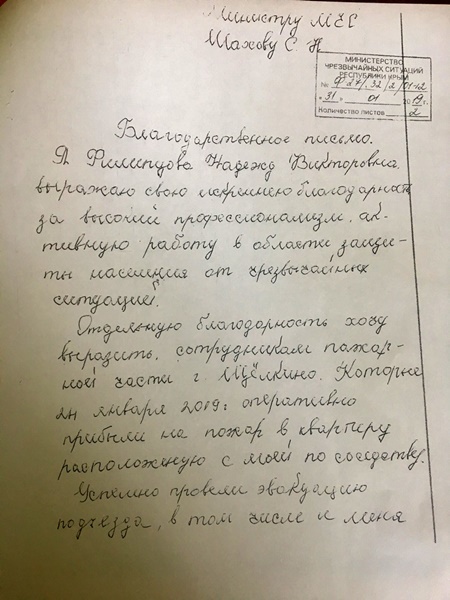 Министру МЧС
Шахову С. Н
МИНИСТЕРСТВО
ЧРЕЗВЫЧАЙНЫХ СИТУАЦИЙ
РЕСПУБЛИКИ КРЫМ
№ 32/2/01-12
"31" 01 2019г.
Количество листов 2
Благодарственное письмо.
Я Филипцова Надежд Викторовна,
выражаю свою искреннею благодарность
за высокий профессионализм, ак-
тивную работу в области защи-
ты населения от чрезвычайных
ситуаций.
Отдельную благодарность хочу
выразить, сотрудникам пожар-
ной части г. Щёлкино. Которые
января 2019г оперативно
прибыли на пожар в квартиру
расположеную с моей по соседству.
Успешно провели эвакуацию
подъезда, в том числе и меня